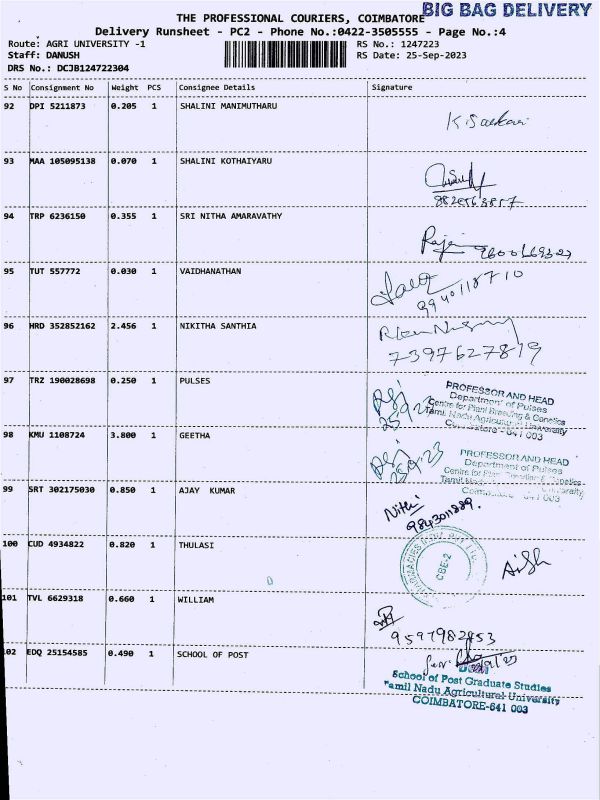 BIG BAG DELIVERY
THE PROFESSIONAL COURIERS, COIMBATORE
Delivery Runsheet - PC2 - Phone No.:0422-3505555 - Page No.:4
Route: AGRI UNIVERSITY -1 RS No.: 1247223
Staff: DANUSH RS Date: 25-Sep-2023
DRS No.: DCJB124722304
S No Consignment No Weight PCS Consignee Details Signature
92 DPI 5211873 0.205 1 SHALINI MANIMUTHARU
93 MAA 105095138 0.070 1 SHALINI KOTHAIYARU
94 TRP 6236150 0.355 1 SRI NITHA AMARAVATHY
95 TUT 557772 0.030 1 VAIDHANATHAN
9940118710
96 HRD 352852162 2.456 1 NIKITHA SANTHIA
7397627819
97 TRZ 190028698 0.250 1 PULSES
PROFESSOR AND HEAD
Department of Pulses
Centre for Plant Breeding & Genetics
Tamil Nadu Agricultural University
Coimbatore - 641 003
98 KMU 1108724 3.800 1 GEETHA
PROFESSOR AND HEAD
Department of Pulses
Centre for Plant Breeding & Genetics
99 SRT 302175030 0.850 1 AJAY KUMAR
Nithi
100 CUD 4934822 0.820 1 THULASI
CBE-2
101 TVL 6629318 0.660 1 WILLIAM
9597982853
102 EDQ 25154585 0.490 1 SCHOOL OF POST
School of Post Graduate Studies
Tamil Nadu Agricultural University
COIMBATORE-641 003